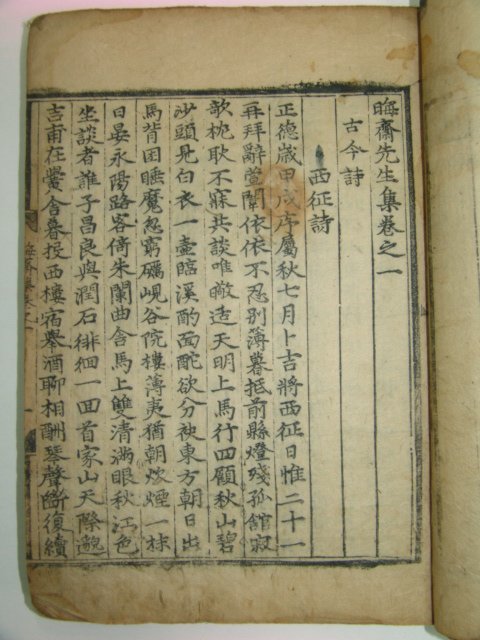 晦齋先生集卷之一
古今詩
西征詩
正德歲甲戌序屬秋七月卜吉將西征日惟二十一
再拜辭萱闈依依不忍別薄暮抵前縣燈殘孤館寂
欹枕耿不寐共談唯敞造天明上馬行四顧秋山碧
沙頭見白衣一壺臨溪酌面酡欲分袂東方朝日出
馬背困睡魔愁窮礪峴谷院樓薄夷猶朝炊煙一抹
日晏永陽路客倚朱闌曲含馬上雙清滿眼秋江色
坐談者誰子昌良與潤石徘徊一回首家山天際邈
吉甫在黌舍暮投西樓宿舉酒聊相酬琴聲斷復續